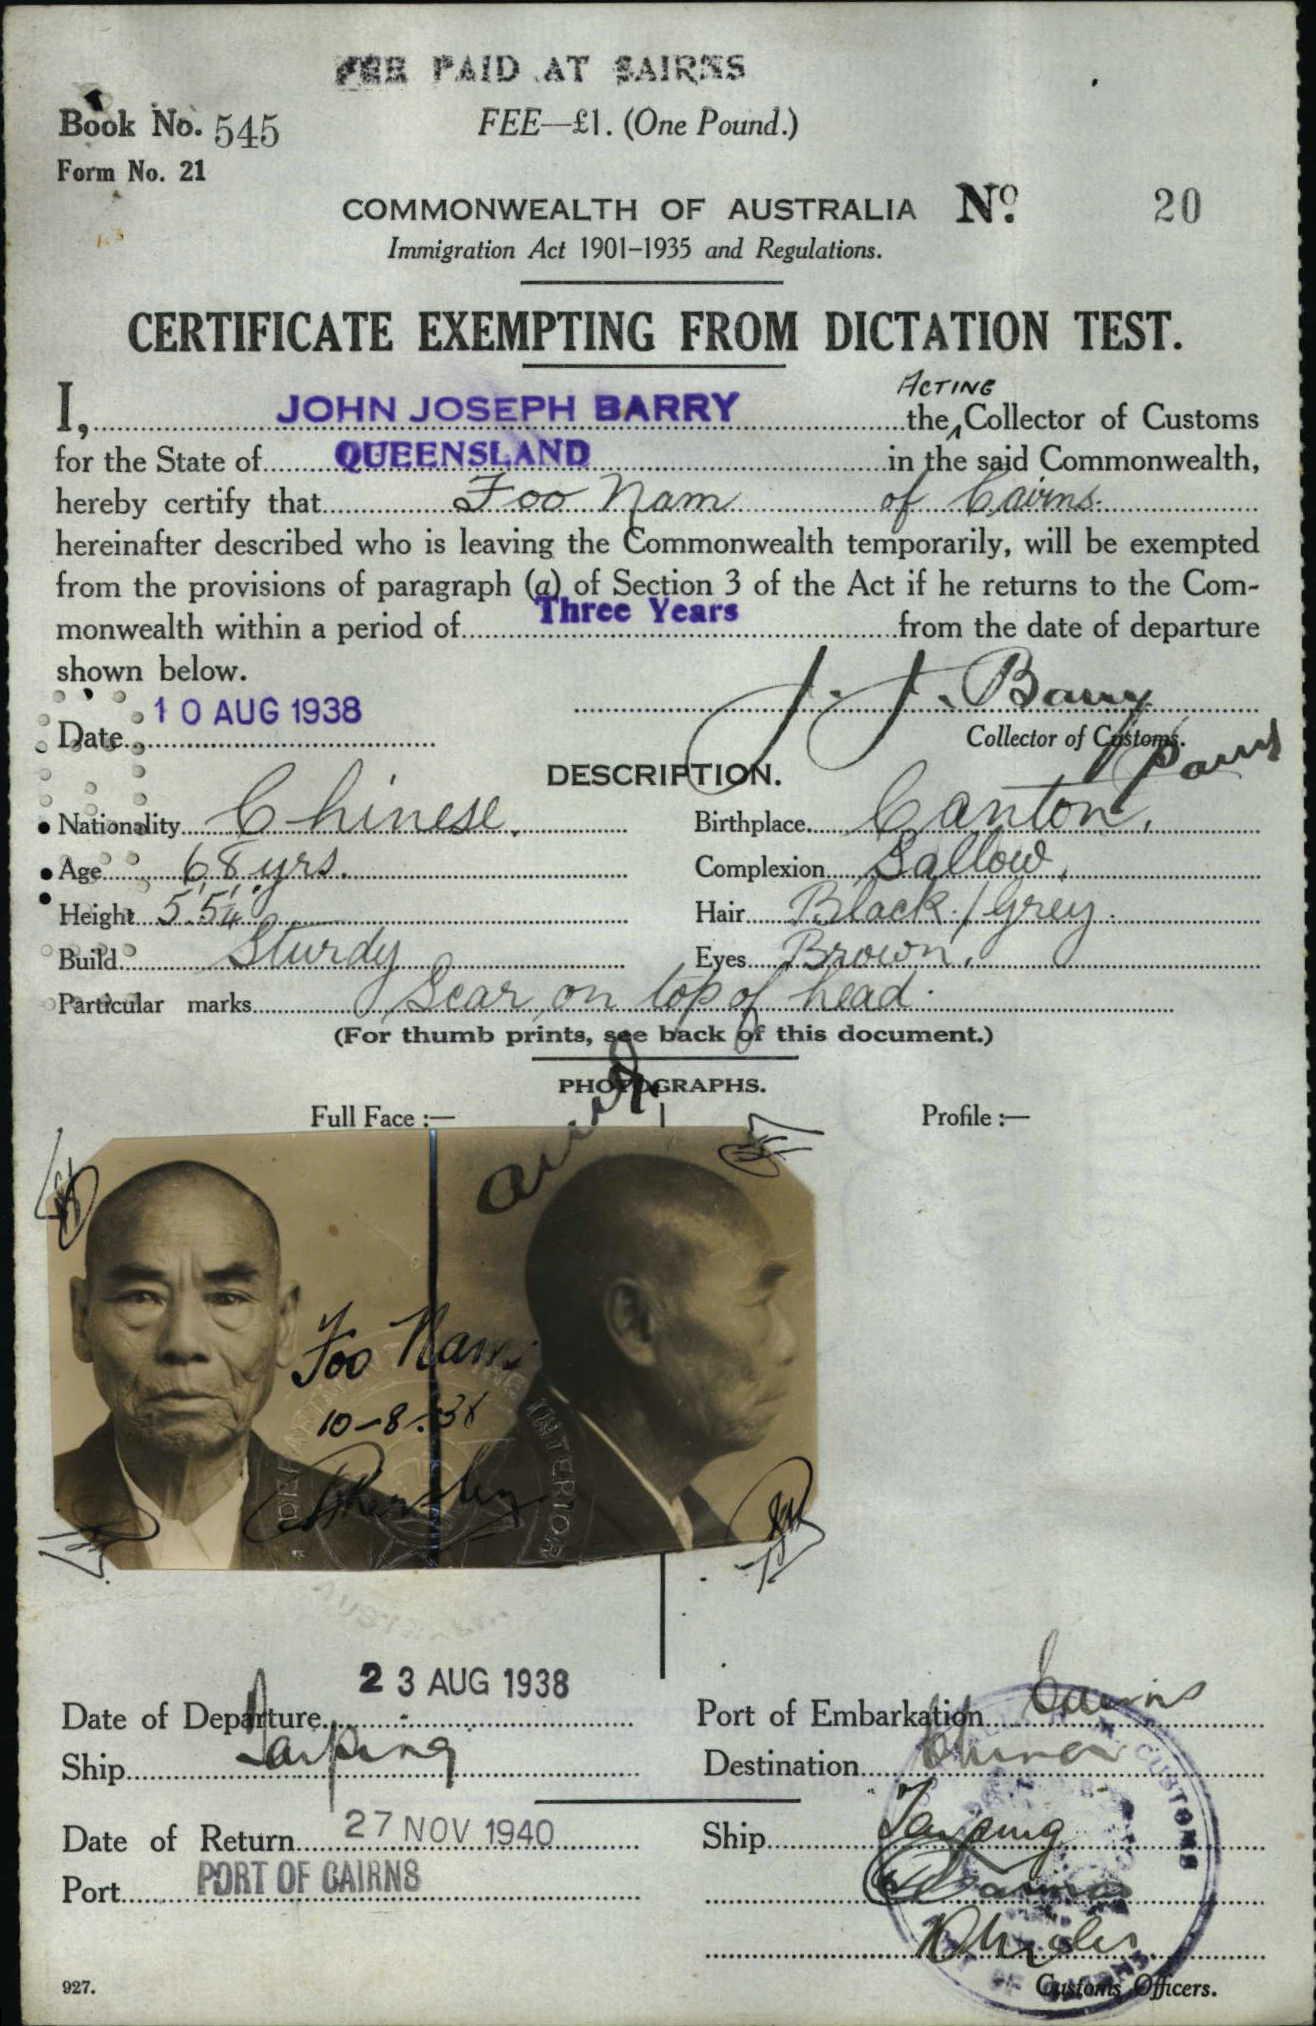 FEE PAID AT CAIRNS
Book No. 545
FEE—£1. (One Pound.)
Form No. 21
COMMONWEALTH OF AUSTRALIA No. 20
Immigration Act 1901–1935 and Regulations.
CERTIFICATE EXEMPTING FROM DICTATION TEST.
ACTING
I, JOHN JOSEPH BARRY the Collector of Customs
for the State of QUEENSLAND in the said Commonwealth,
hereby certify that Foo Nam of Cairns.
hereinafter described who is leaving the Commonwealth temporarily, will be exempted
from the provisions of paragraph (a) of Section 3 of the Act if he returns to the Com-
monwealth within a period of Three Years from the date of departure
shown below.
J. J. Barry
Date 10 AUG 1938
Collector of Customs.
DESCRIPTION.
Nationality Chinese. Birthplace Canton.
Age 68 yrs. Complexion Sallow.
Height 5' 5¼" Hair Black / Grey.
Build Sturdy Eyes Brown.
Particular marks Scar on top of head.
(For thumb prints, see back of this document.)
PHOTOGRAPHS.
Full Face :— Profile :—
Foo Nam
10-8-38
DEPARTMENT OF THE INTERIOR
Date of Departure 23 AUG 1938 Port of Embarkation Cairns
Ship Taiping Destination China
Date of Return 27 NOV 1940 Ship Taiping
Port PORT OF CAIRNS
CUSTOMS
Customs Officers.
927.